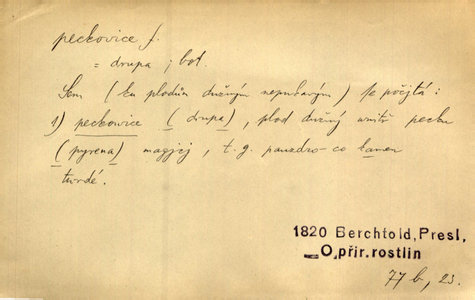 peckovice f.
= drupa ; bot.
Sem (ku plodům dužným nepukavým) se počjtá:
1) peckowice (drupa), plod dužný wnitř pecku
(pyrena) magjcj, t. g. pauzdro co kamen
twrdé.
1820 Berchtold, Presl,
O přir. rostlin
77 b, 23.